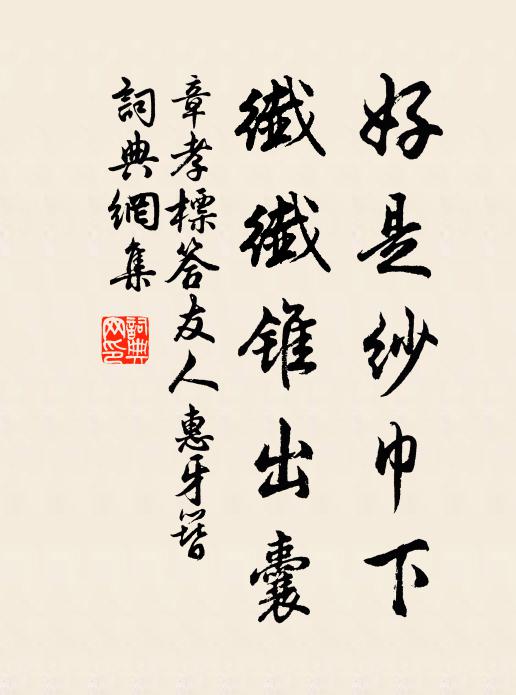 好是紗巾下
纖纖錐出囊
章孝標答友人惠牙簪
詞典網集
詞典网印